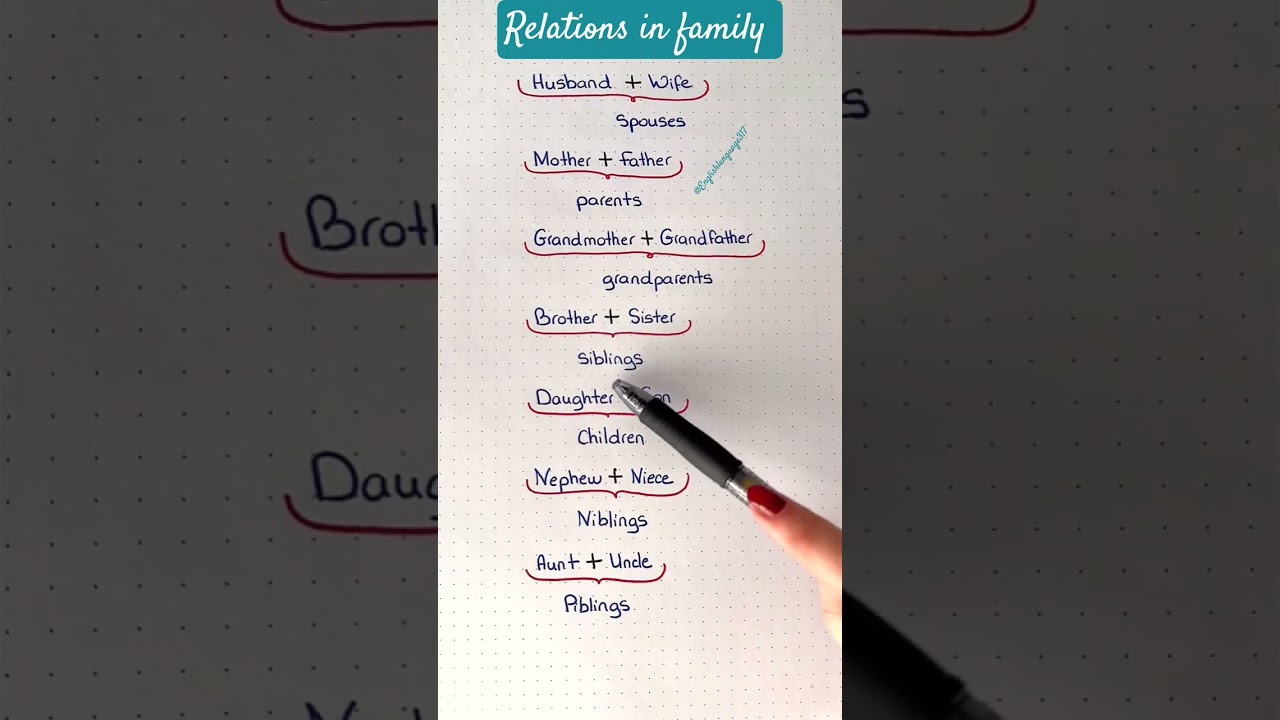 Relations in family
Husband + Wife
Spouses
@Englishlanguage317
Mother + Father
parents
Grandmother + Grandfather
grandparents
Brother + Sister
Siblings
Daughter Son
Children
Nephew + Niece
Niblings
Aunt + Uncle
Piblings